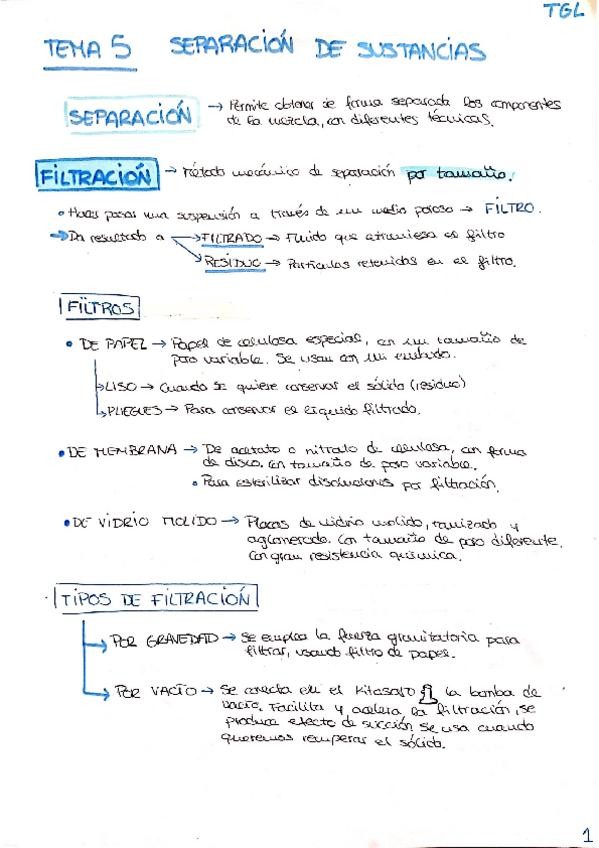 TGL
TEMA 5 SEPARACIÓN DE SUSTANCIAS
SEPARACIÓN → Permite obtener de forma separada los componentes
de la mezcla, con diferentes técnicas.
FILTRACIÓN → Método mecánico de separación por tamaño.
• Hacer pasar una suspensión a través de un medio poroso → FILTRO.
→ Da resultado a → FILTRADO → Fluido que atraviesa el filtro
RESIDUO → Partículas retenidas en el filtro.
FILTROS
• DE PAPEL → Papel de celulosa especial, con un tamaño de
poro variable. Se usan con un embudo.
→ LISO → Cuando se quiere conservar el sólido (residuo)
→ PLIEGUES → Para conservar el líquido filtrado.
• DE MEMBRANA → De acetato o nitrato de celulosa, con forma
de disco. Con tamaño de poro variable.
• Para esterilizar disoluciones por filtración.
• DE VIDRIO MOLIDO → Placas de vidrio molido, tamizado y
aglomerado. Con tamaño de poro diferente.
Con gran resistencia química.
TIPOS DE FILTRACIÓN
→ POR GRAVEDAD → Se emplea la fuerza gravitatoria para
filtrar, usando filtro de papel.
→ POR VACÍO → Se conecta en el Kitasato la bomba de
vacío. Facilita y acelera la filtración, se
produce efecto de succión. Se usa cuando
queremos recuperar el sólido.
1